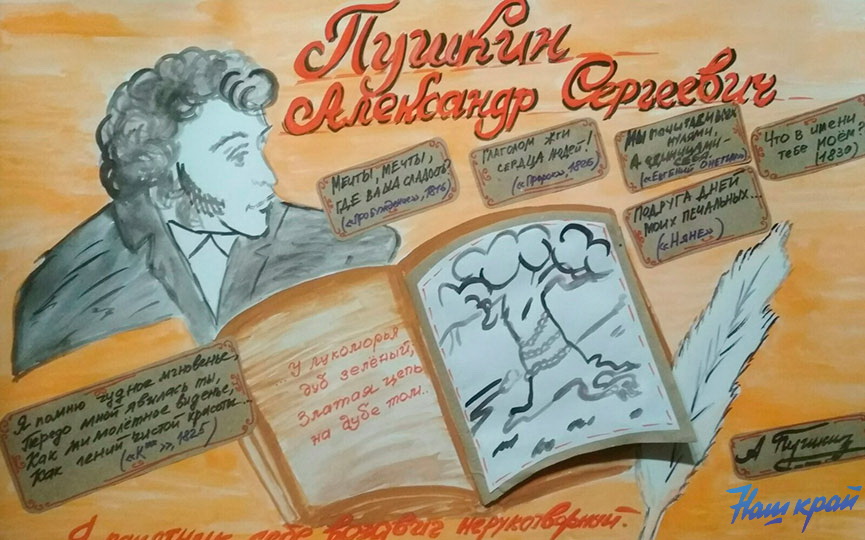 Пушкин
Александр Сергеевич
Мечты, мечты,
где ваша сладость?
(«Пробуждение», 1816)
Глаголом жги
сердца людей!
(«Пророк», 1826)
Мы почитаем всех
нулями,
А единицами –
себя.
(«Евгений Онегин»)
Что в имени
тебе моём?
(1830)
Подруга дней
моих печальных...
(«Няне»)
...у лукоморья
дуб зелёный,
Златая цепь
на дубе том...
Я помню чудное мгновенье,
Передо мной явилась ты,
Как мимолётное виденье,
Как гений чистой красоты...
(«К***», 1825)
А Пушкин
Я памятник себе воздвиг нерукотворный.
Наш край